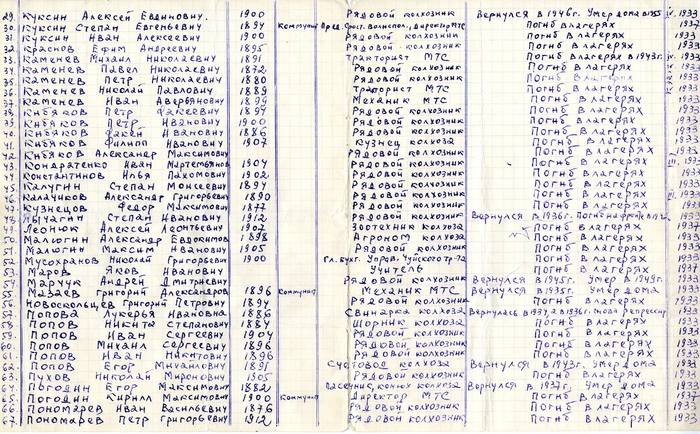 29. Куксин Алексей Евдинович. 1900 Рядовой колхозник Вернулся в 1946г. Умер дома в 1955 1933
30. Куксин Степан Евгеньевич 1894 Коммунист Погиб в лагерях 1937
31. Куксин Иван Алексеевич 1900 Рядовой колхозник Погиб в лагерях 1933
32. Краснов Ефим Андреевич 1895 Рядовой колхозник Погиб в лагерях 1933
33. Каменев Михаил Николаевич 1891 Тракторист МТС Погиб в лагерях в 1943г. 1933
34. Каменев Павел Николаевич 1872 Рядовой колхозник Погиб в лагерях 1933
35. Каменев Петр Николаевич 1880 Рядовой колхозник Погиб в лагерях 1933
36. Каменев Николай Павлович 1889 Тракторист МТС Погиб в лагерях 1933
37. Каменев Иван Аверьянович 1899 Механик МТС Погиб в лагерях 1933
38. Кибяков Петр Факеевич 1894 Рядовой колхозник Погиб в лагерях 1933
39. Кибяков Петр Иванович 1900 Рядовой колхозник Погиб в лагерях 1933
40. Кибяков Факей Иванович 1886 Рядовой колхозник Погиб в лагерях 1933
41. Кибяков Филипп Иванович 1907 Кузнец колхоза Погиб в лагерях 1933
42. Кибяков Александр Максимович Рядовой колхозник Погиб в лагерях 1933
43. Кондратенко Иван Мартемьянович 1904 Рядовой колхозник Погиб в лагерях 1933
44. Константинов Илья Пахомович 1902 Рядовой колхозник Погиб в лагерях 1933
45. Калугин Степан Моисеевич 1894 Рядовой колхозник Погиб в лагерях 1933
46. Калачиков Александр Григорьевич 1890 Рядовой колхозник Погиб в лагерях 1933
47. Кузнецов Федор Максимович 1872 Рядовой колхозник Погиб в лагерях 1933
48. Лычагин Степан Иванович 1912 Рядовой колхозник Вернулся в 1936г. Погиб на фронте 1933
49. Леонюк Алексей Леонтьевич 1907 Зоотехник колхоза Погиб в лагерях 1937
50. Малюгин Александр Евдокимов 1898 Агроном колхоза Погиб в лагерях 1933
51. Малюгин Максим Иванович 1905 Рядовой колхозник Погиб в лагерях 1933
52. Мусохранов Николай Григорьевич 1900 Гл. бухг. Управ. Чуйского тр-та Погиб в лагерях 1937
53. Маров Яков Иванович Учитель Погиб в лагерях 1937
54. Марчук Андрей Дмитриевич Рядовой колхозник Вернулся в 1945г. Умер в 1949г. 1933
55. Мазаев Григорий Александров 1896 Коммунист Механик МТС Вернулся в 1935г. Умер дома 1933
56. Новоскольцев Григорий Петрович 1894 Рядовой колхозник Погиб в лагерях 1933
57. Попова Лукерья Ивановна 1886 Свинарка колхоза Вернулась в 1937, в 1938г. снова репрессир 1933
58. Попов Никита Степанович 1884 Шорник колхоза Погиб в лагерях 1933
59. Попов Иван Сергеевич 1904 Рядовой колхозник Погиб в лагерях 1933
60. Попов Михаил Сергеевич 1896 Рядовой колхозник Погиб в лагерях 1933
61. Попов Иван Никитович 1896 Рядовой колхозник Погиб в лагерях 1933
62. Попов Егор Михайлович 1891 колхоза Вернулся в 1943г. Умер дома 1933
63. Пухов Николай Миронович 1905 Рядовой колхозник Погиб в лагерях 1933
64. Погодин Егор Максимович 1882 Пасечник, конюх колхоза Вернулся в 1937г. Умер дома 1933
65. Погодин Кирилл Максимович 1900 Коммунист Директор МТС Погиб в лагерях 1937
66. Пономарев Иван Васильевич 1876 Рядовой колхозник Погиб в лагерях 1933
67. Пономарев Петр Григорьевич 1912 Рядовой колхозник Погиб в лагерях 1933